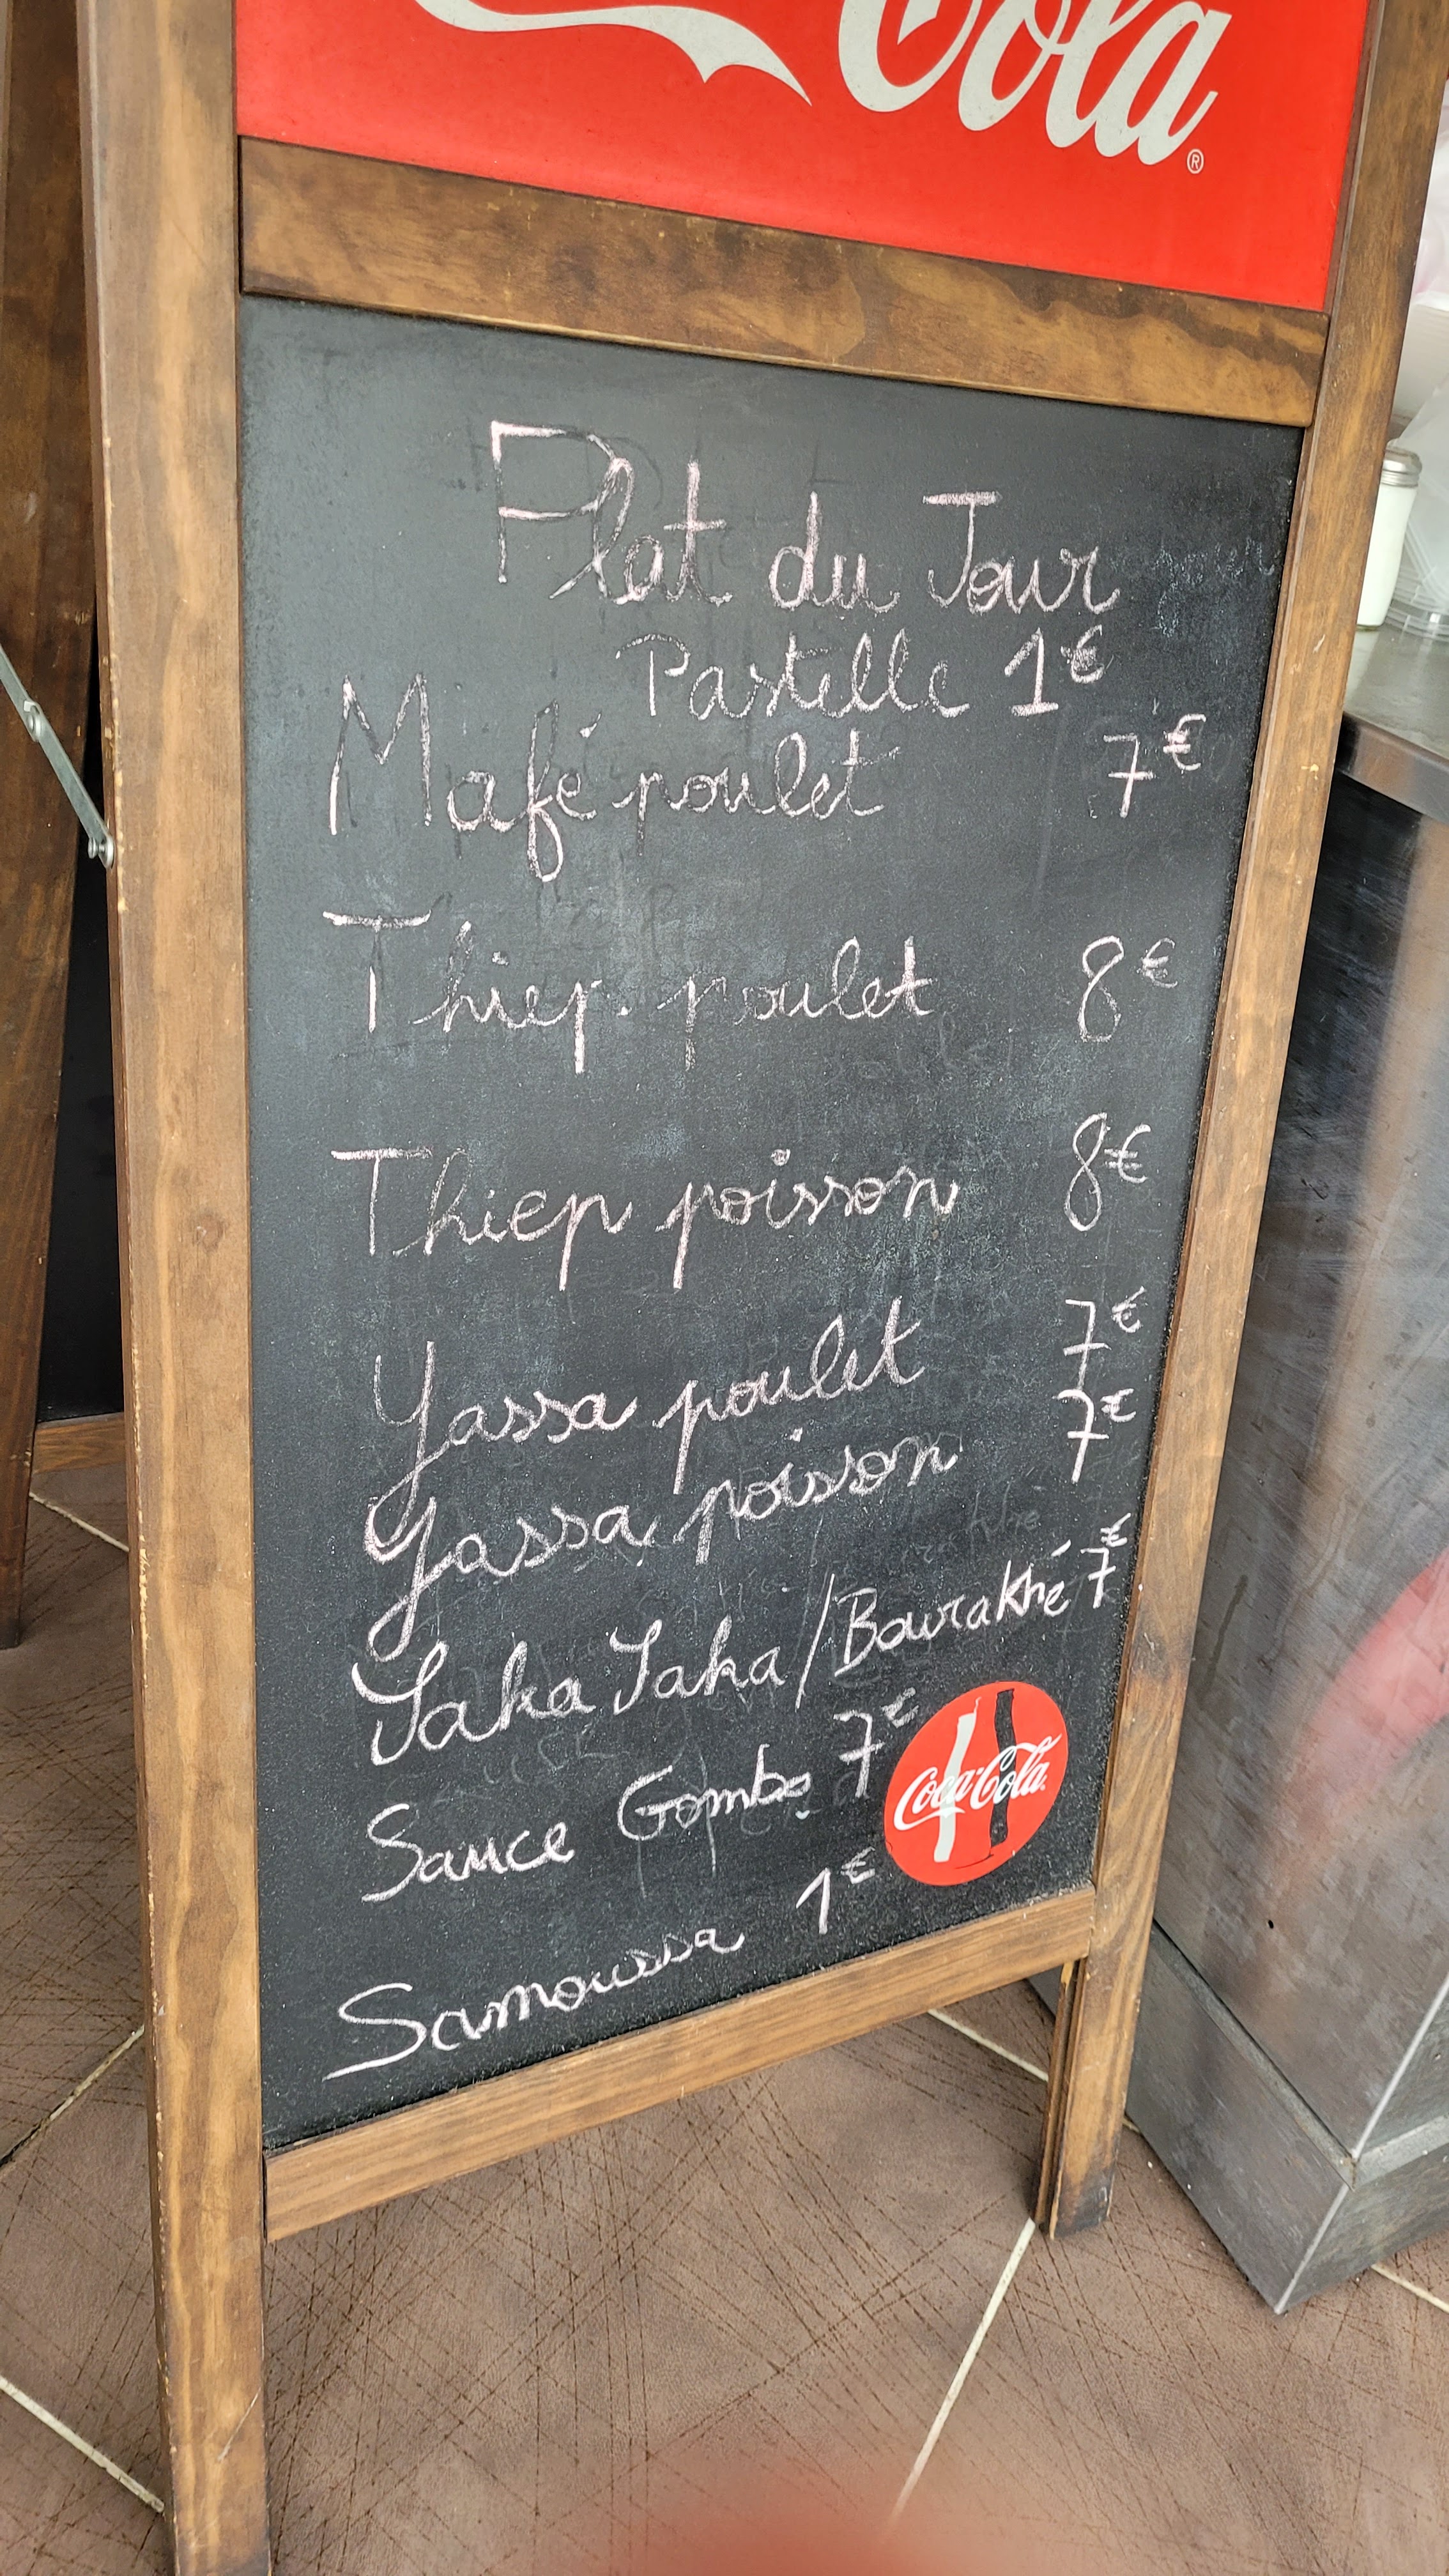 Cola®
Plat du Jour
Pastille 1€
Mafé poulet 7€
Thiep poulet 8€
Thiep poisson 8€
Yassa poulet 7€
Yassa poisson 7€
Saka Saka/Bourakhé 7€
Sauce Gombo 7€
Coca-Cola
Samoussa 1€